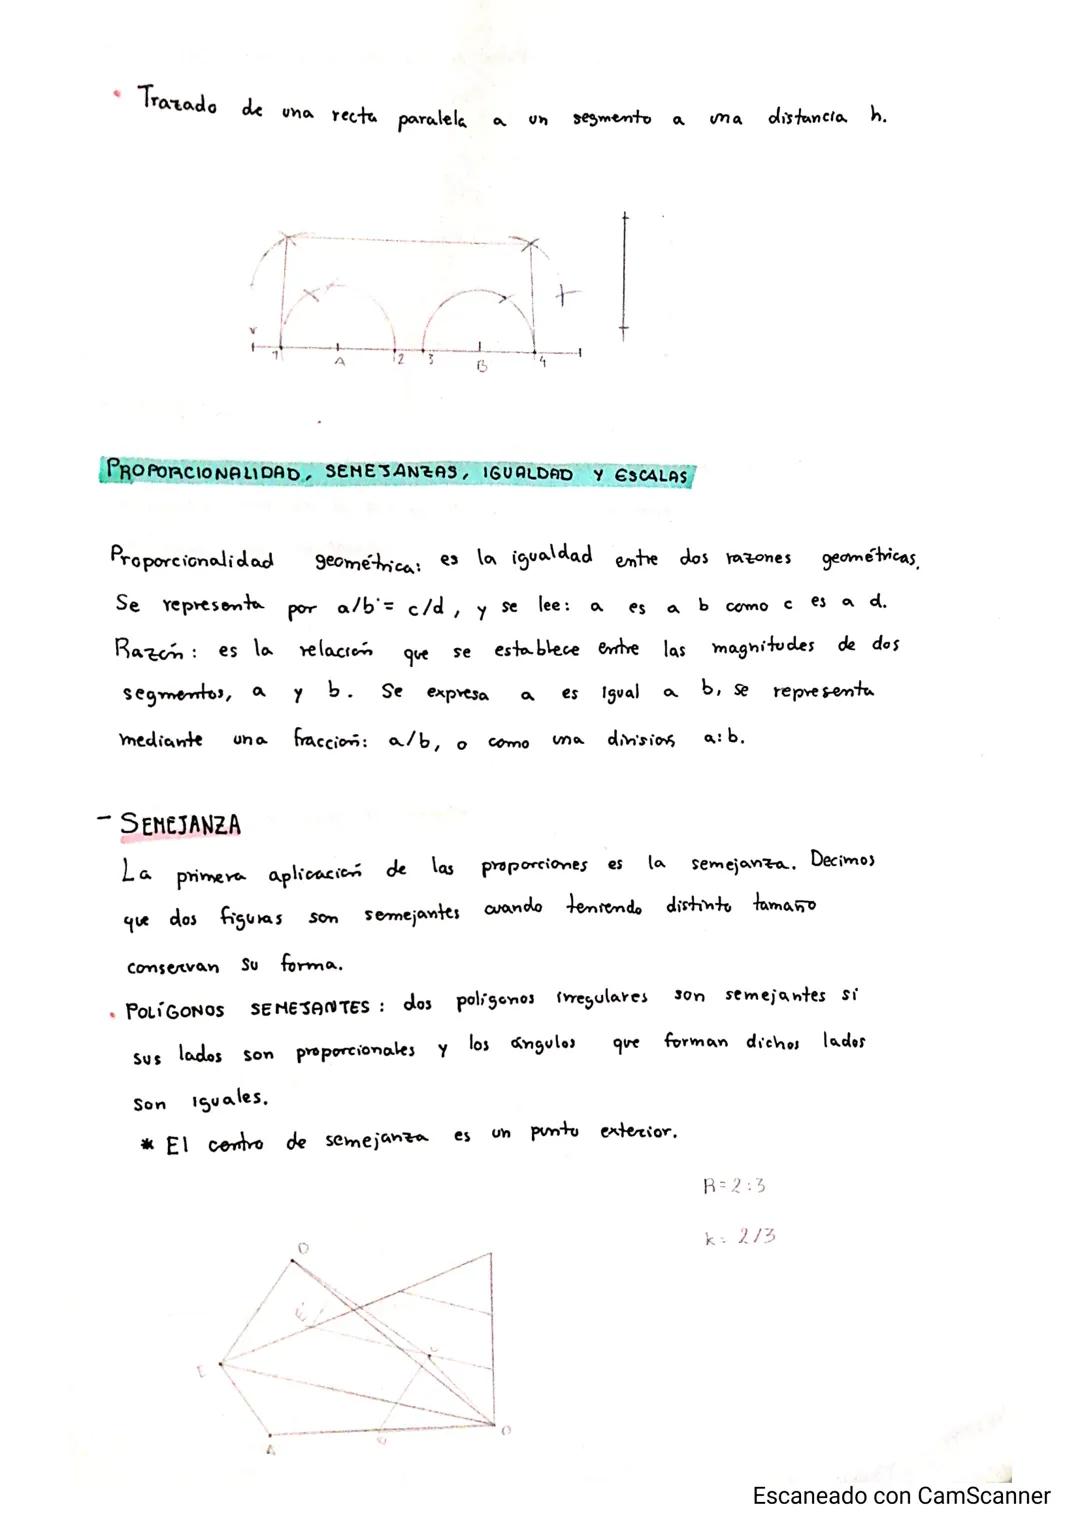 • Trazado de una recta paralela a un segmento a una distancia h.
r
1 A 2 3 B 4
PROPORCIONALIDAD, SEMEJANZAS, IGUALDAD Y ESCALAS
Proporcionalidad geométrica: es la igualdad entre dos razones geométricas.
Se representa por a/b = c/d, y se lee: a es a b como c es a d.
Razón: es la relación que se establece entre las magnitudes de dos
segmentos, a y b. Se expresa a es igual a b, se representa
mediante una fracción: a/b, o como una división a:b.
- SEMEJANZA
La primera aplicación de las proporciones es la semejanza. Decimos
que dos figuras son semejantes cuando teniendo distinto tamaño
conservan su forma.
• POLÍGONOS SEMEJANTES: dos polígonos irregulares son semejantes si
sus lados son proporcionales y los ángulos que forman dichos lados
son iguales.
* El centro de semejanza es un punto exterior.
R=2:3
k= 2/3
D
E'
C
E
O
A
Escaneado con CamScanner